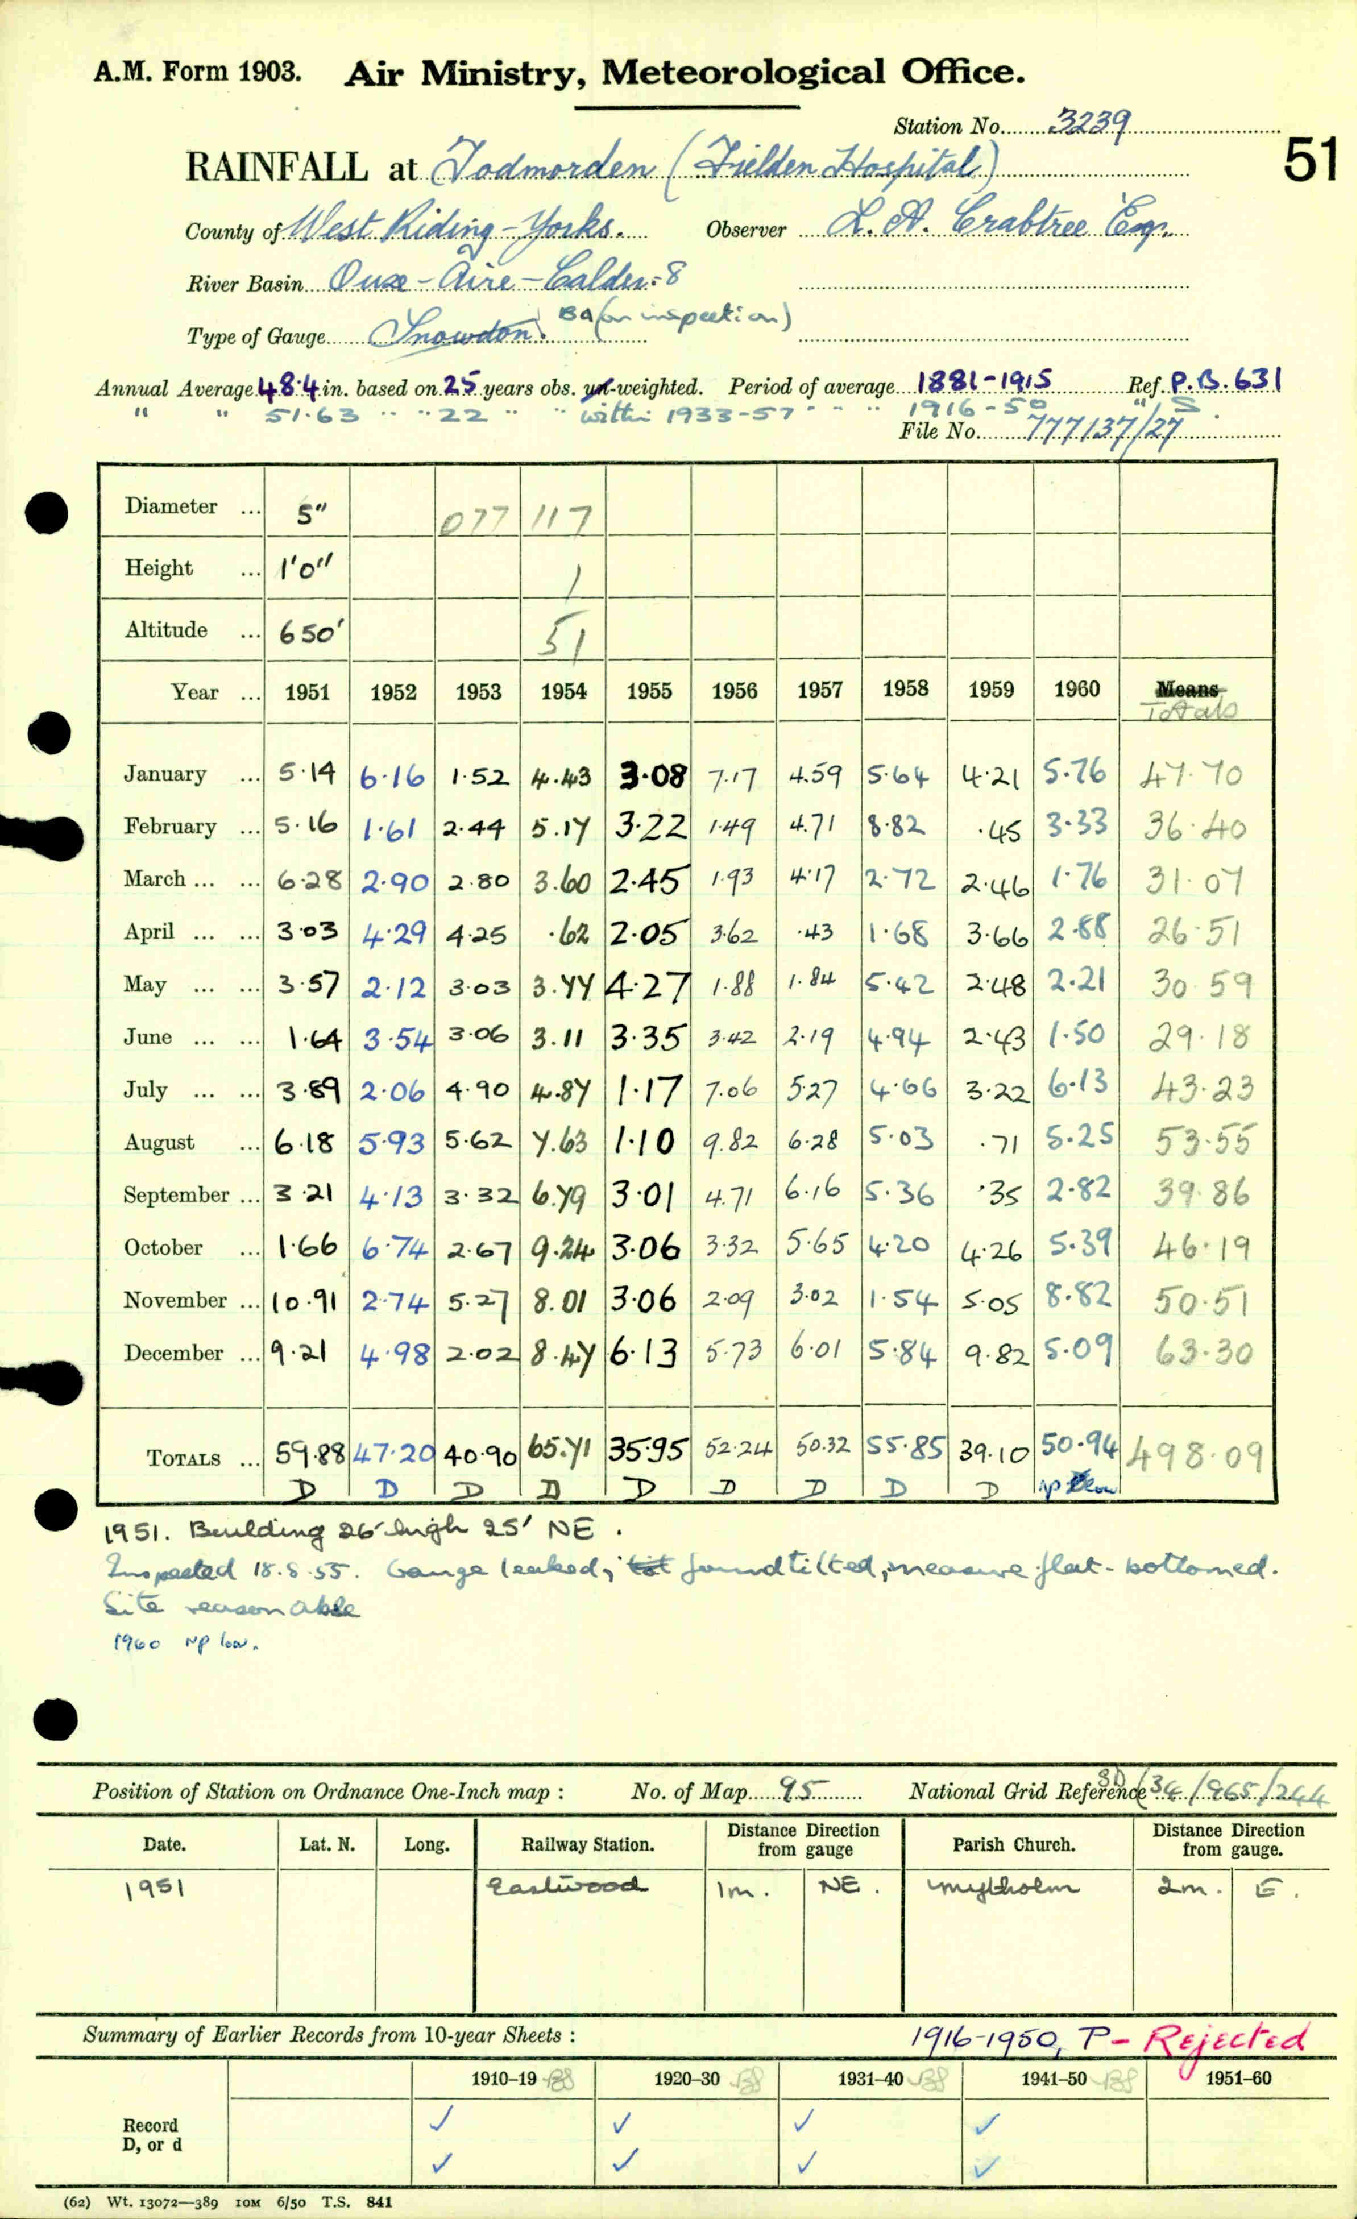 A.M. Form 1903. Air Ministry, Meteorological Office.
Station No. 3239
51
RAINFALL at Todmorden (Fielden Hospital)
County of West Riding - Yorks. Observer L. A. Crabtree Esq.
River Basin Ouse - Aire - Calder: 8
Type of Gauge Snowdon. BA (on inspection)
Annual Average 48·4 in. based on 25 years obs. un-weighted. Period of average 1881-1915 Ref. P.B. 631
" " 51·63 " " 22 " " within 1933-57 " " " 1916-50 "/S.
File No. 777137/27
Diameter ... 5" 077 117
Height ... 1'0" 1
Altitude ... 650' 51
Year ... 1951 1952 1953 1954 1955 1956 1957 1958 1959 1960 Means
Totals
January ... 5·14 6·16 1·52 4·43 3·08 7·17 4·59 5·64 4·21 5·76 47·70
February ... 5·16 1·61 2·44 5·17 3·22 1·49 4·71 8·82 ·45 3·33 36·40
March ... ... 6·28 2·90 2·80 3·60 2·45 1·93 4·17 2·72 2·46 1·76 31·07
April ... ... 3·03 4·29 4·25 ·62 2·05 3·62 ·43 1·68 3·66 2·88 26·51
May ... ... 3·57 2·12 3·03 3·77 4·27 1·88 1·84 5·42 2·48 2·21 30·59
June ... ... 1·64 3·54 3·06 3·11 3·35 3·42 2·19 4·94 2·43 1·50 29·18
July ... ... 3·89 2·06 4·90 4·87 1·17 7·06 5·27 4·66 3·22 6·13 43·23
August ... 6·18 5·93 5·62 7·63 1·10 9·82 6·28 5·03 ·71 5·25 53·55
September ... 3·21 4·13 3·32 6·79 3·01 4·71 6·16 5·36 ·35 2·82 39·86
October ... 1·66 6·74 2·67 9·24 3·06 3·32 5·65 4·20 4·26 5·39 46·19
November ... 10·91 2·74 5·27 8·01 3·06 2·09 3·02 1·54 5·05 8·82 50·51
December ... 9·21 4·98 2·02 8·47 6·13 5·73 6·01 5·84 9·82 5·09 63·30
TOTALS ... 59·88 47·20 40·90 65·71 35·95 52·24 50·32 55·85 39·10 50·94 498·09
D D D D D D D D D np low
1951. Building 26' high 25' NE.
Inspected 18·8·55. Gauge leaked, found tilted, measure flat-bottomed.
Site reasonable
1960 np low.
Position of Station on Ordnance One-Inch map : No. of Map 95 National Grid Reference SD (34/965/244
Date. Lat. N. Long. Railway Station. Distance from Direction gauge Parish Church. Distance from Direction gauge.
1951 Eastwood 1m. NE. Mytholm 2m. E.
Summary of Earlier Records from 10-year Sheets : 1916-1950, P - Rejected
1910–19 1920–30 1931–40 1941–50 1951–60
Record
D, or d
(62) Wt. 13072—389 10M 6/50 T.S. 841